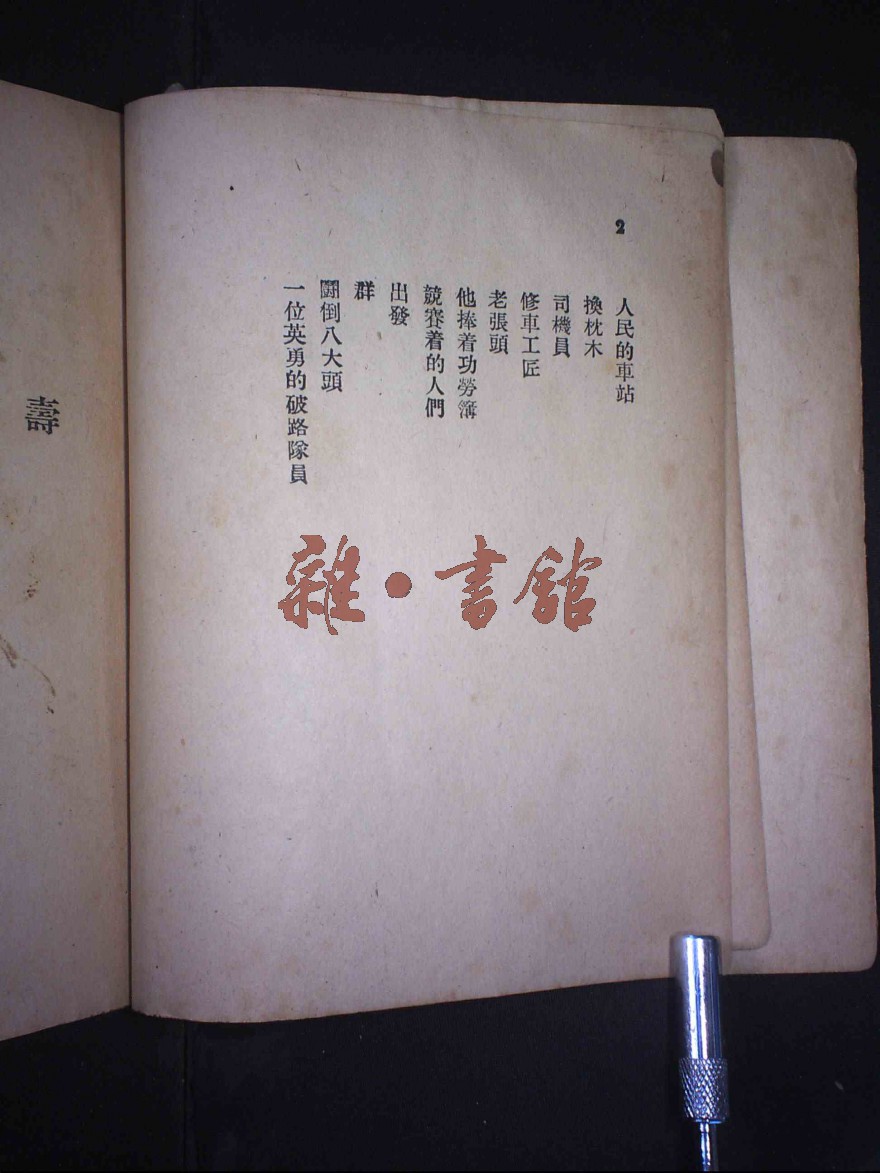 2
人民的車站
換枕木
司機員
修車工匠
老張頭
他捧着功勞簿
競賽着的人們
出發
群
鬪倒八大頭
一位英勇的破路隊員
壽
雜·書館